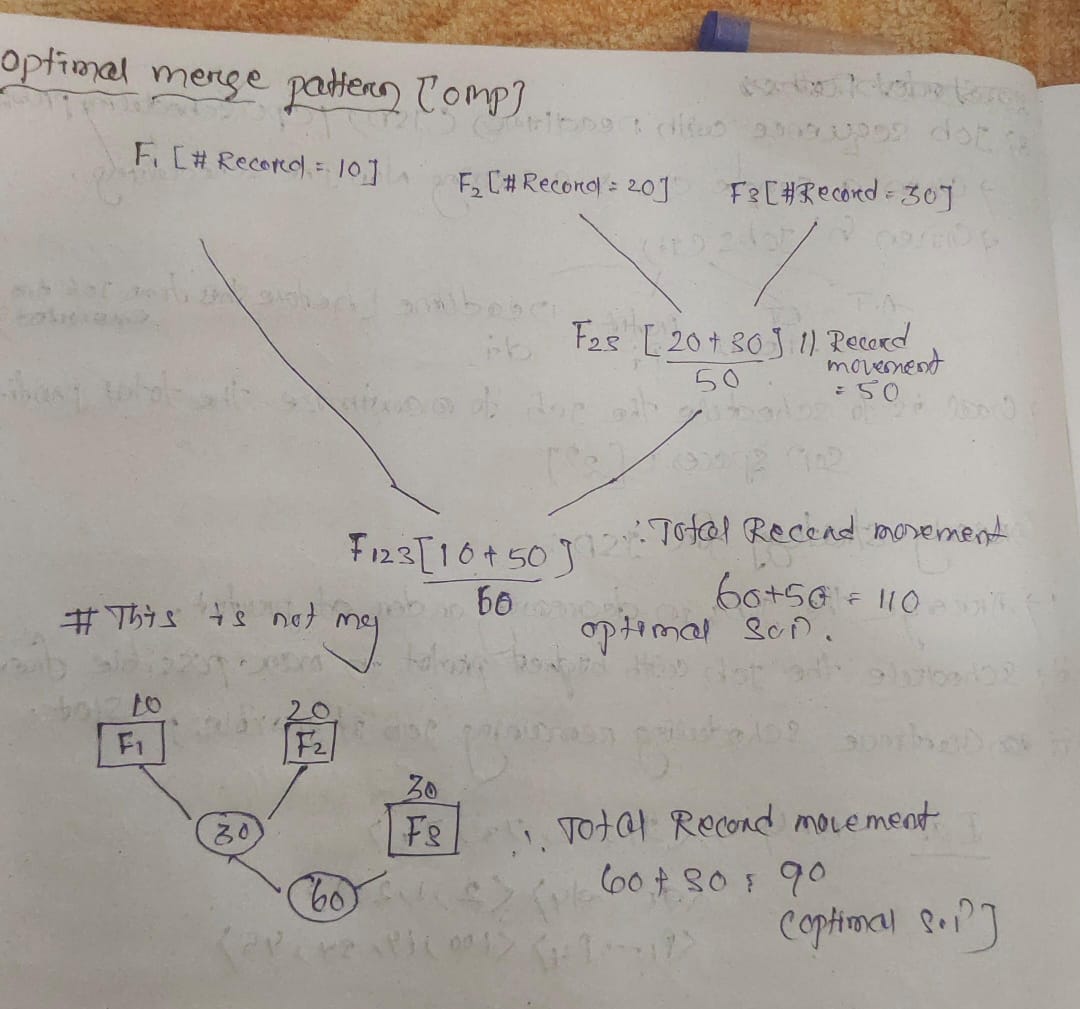 Optimal merge pattern [omp]
F1 [# Record = 10]
F2 [# Record = 20]
F3 [#Record = 30]
F23 [20 + 30] // Record
movement
50
= 50
F123 [10 + 50]
60
∴ Total Record movement
60+50 = 110
# This is not my
optimal Soln.
10
20
F1
F2
30
30
F3
60
∴ Total Record movement
60 + 30 = 90
(optimal Soln]